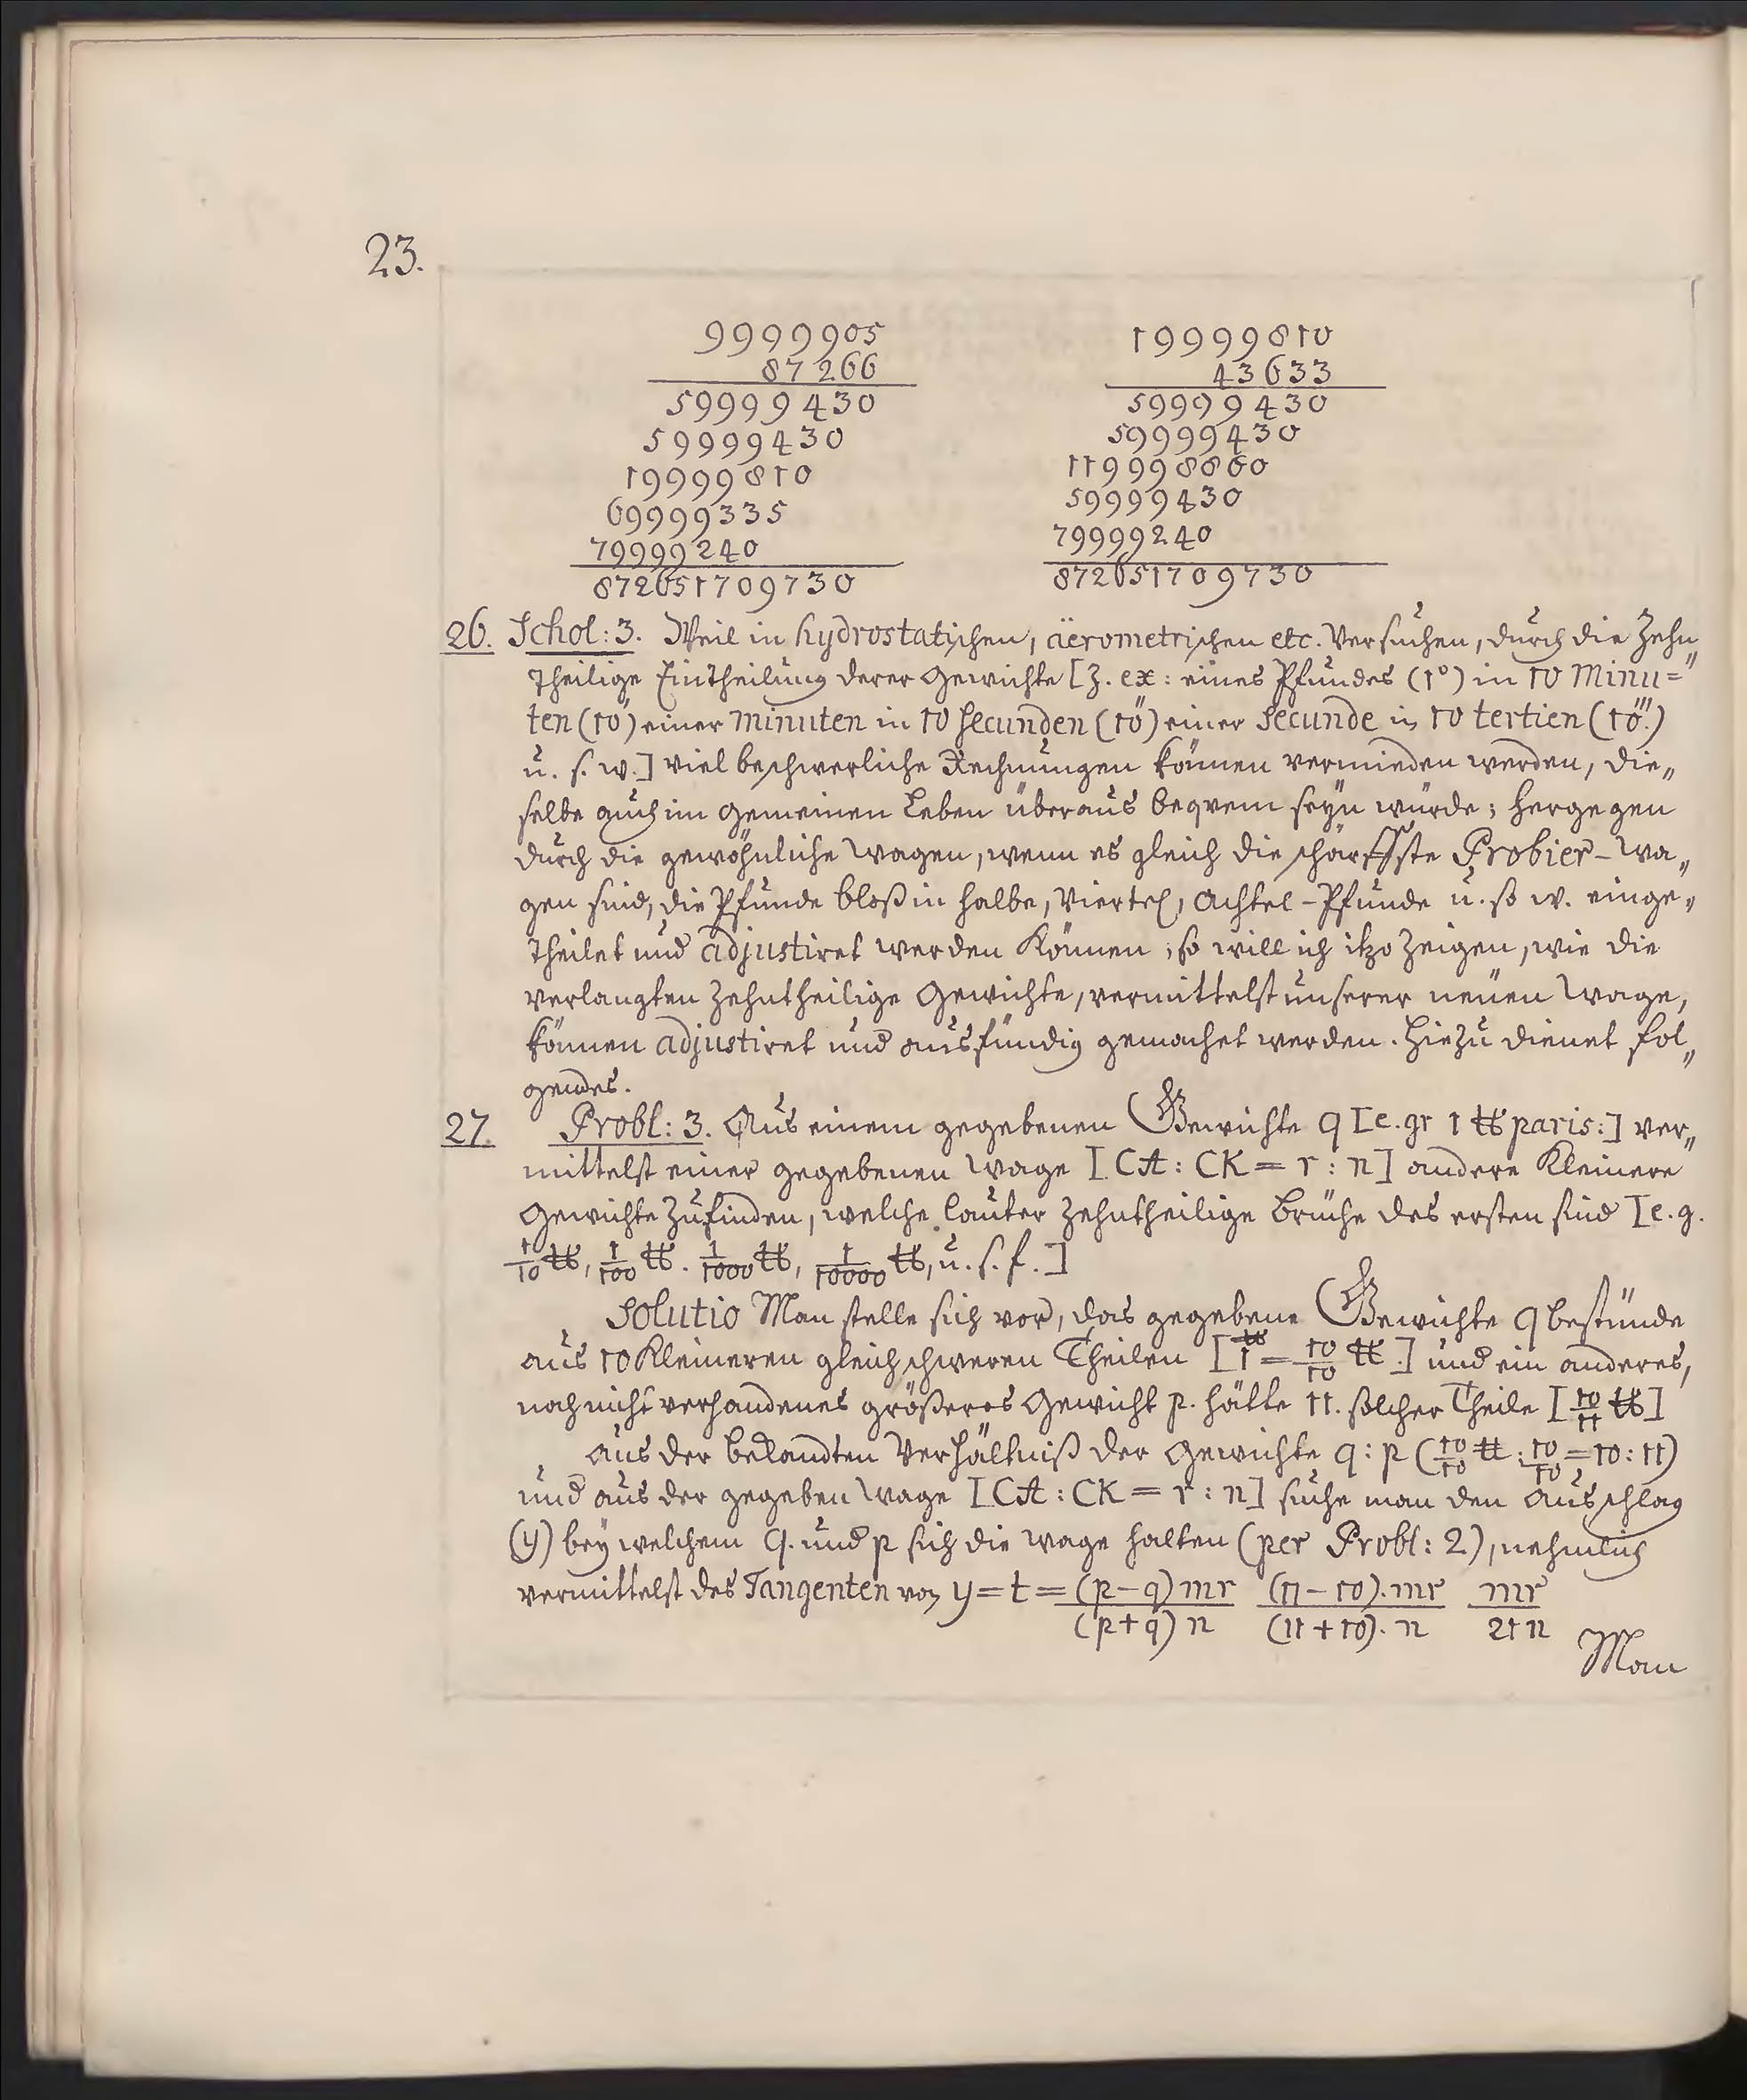 23.
9999905 19999810
87266 43633
59999430 59999430
59999430 59999430
19999810 119998860
69999335 59999430
79999240 79999240
872651709730 872651709730
26. Schol: 3. Weil in hydrostatischen, äerometrischen etc. Versuchen, durch die Zehn„
theilige Eintheilung derer Gewichte [z. ex: eines Pfundes (1°) in 10 Minu=
ten (10') einer minuten in 10 secunden (10'') einer Secunde in 10 tertien (10'''.)
u. s. w.] viel beschwerliche Rechnungen können vermieden werden, die„
selbe auch im gemeinen Leben überaus beqvem seyn würde; hergegen
durch die gewöhnliche Wagen, wenn es gleich die schärffste Probier-Wa„
gen sind, die Pfunde bloß in halbe, Viertel, Achtel-Pfunde u. so w. einge„
theilet und adjustiret werden können; so will ich itzo zeigen, wie die
verlangten zehntheilige Gewichte, vermittelst unserer neuen Wage,
können adjustiret und ausfündig gemachet werden. Hiezu dienet fol„
gendes.
27. Probl: 3. Aus einem gegebenen Gewichte q [e. gr 1 ℔ paris:] ver„
mittelst einer gegebenen Wage [CA : CK = r : n] andere kleinere
Gewichte zufinden, welche lauter zehntheilige Brüche des ersten sind [e. g.
1/10 ℔, 1/100 ℔. 1/1000 ℔, 1/10000 ℔, u. s. f.]
Solutio Man stelle sich vor, das gegebene Gewichte q bestünde
aus 10 kleineren gleich schweren Theilen [1 ℔ = 10/10 ℔.] und ein anderes,
noch nicht verhandenes größeres Gewicht p. hätte 11. solcher Theile [10/11 ℔]
Aus der bekandten Verhältniß der Gewichte q : p (10/10 ℔ : 10/10 = 10 : 11)
und aus der gegeben Wage [CA : CK = r : n] suche man den Ausschlag
(y) bey welchem q. und p sich die Wage halten (per Probl: 2), nehmlich
vermittelst des Tangenten von y = t = (p - q) mr / (p + q) n (11 - 10). mr / (11 + 10). n mr / 21 n
Man